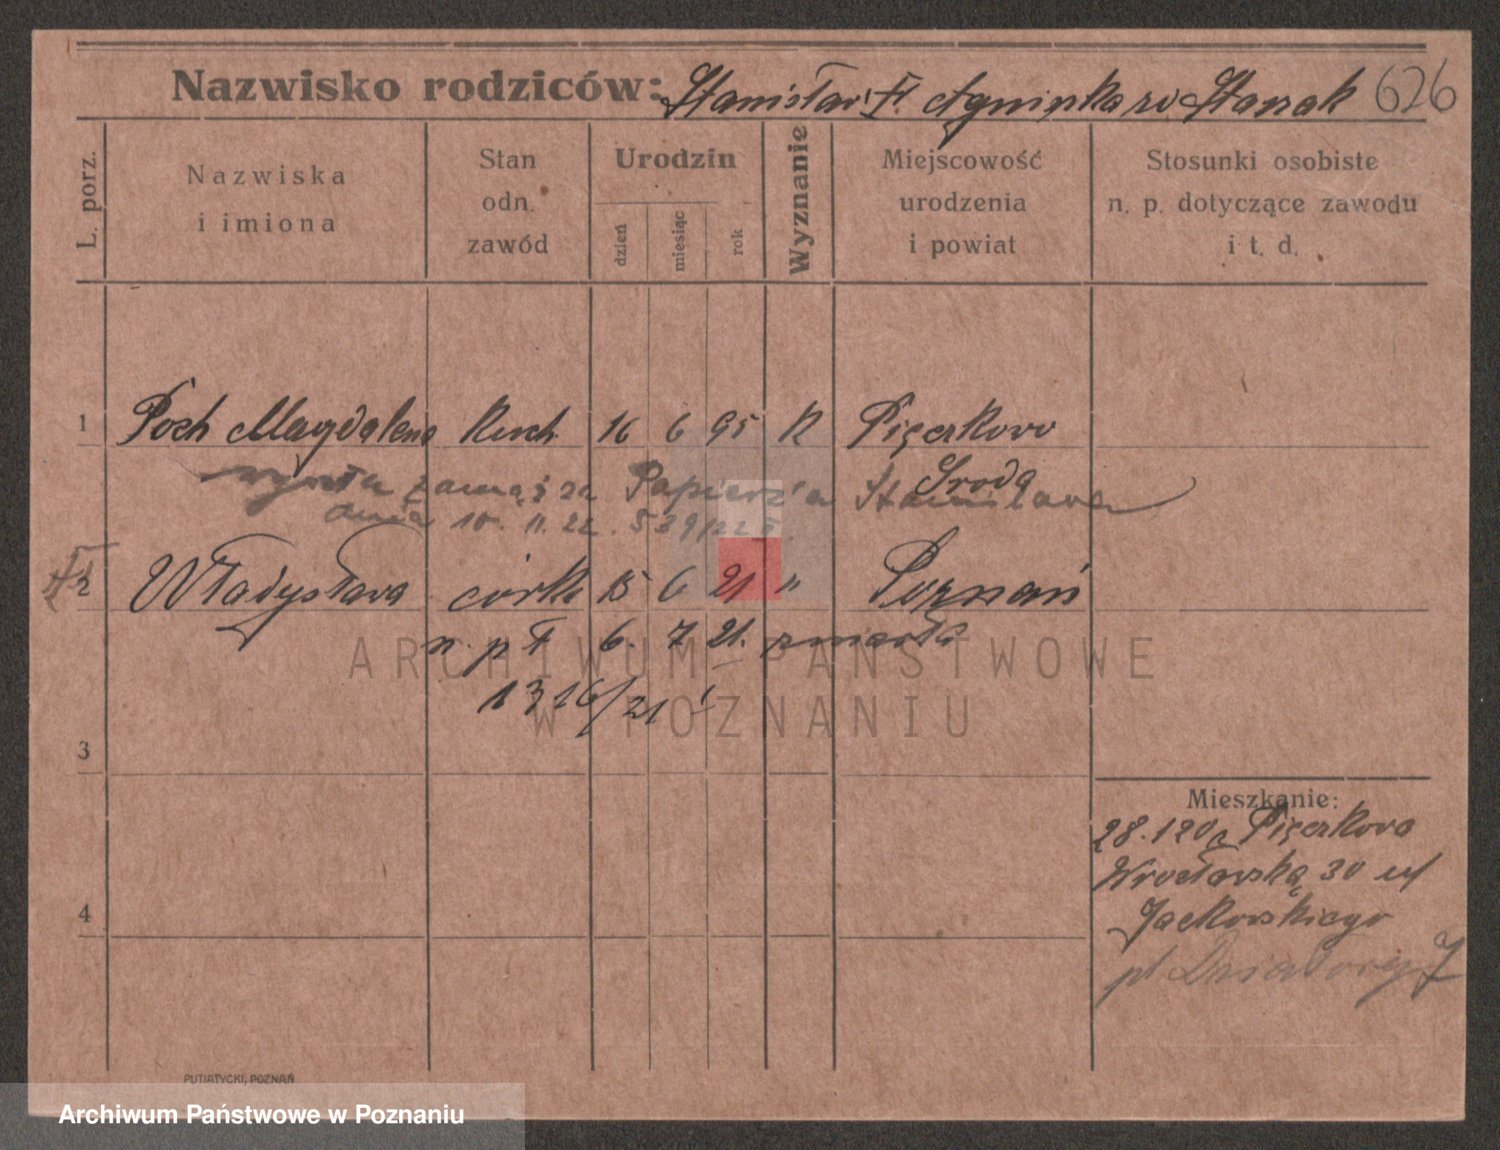 Nazwisko rodziców: Stanisław i Agnieszka zd Staszak 626
L. porz.
Nazwiska i imiona
Stan odn. zawód
Urodzin
dzień
miesiąc
rok
Wyznanie
Miejscowość urodzenia i powiat
Stosunki osobiste n. p. dotyczące zawodu i t. d.
1 Poch Magdalena kuch. 16 6 95 K Pięczkowo
Środa
wyszła zamąż za Papierz'a Stanisława
dnia 10. 11. 22. 539/22
2 Władysława córka 15 6 21 " Poznań
n. p. 6. 7 21. zmarła
1316/21
3
4
Mieszkanie:
28.1 20 z Pięczkowo
Wrocławska 30
Jackowskiego
pl Działowy 7
PUTIATYCKI, POZNAŃ
ARCHIWUM PAŃSTWOWE
W POZNANIU
Archiwum Państwowe w Poznaniu